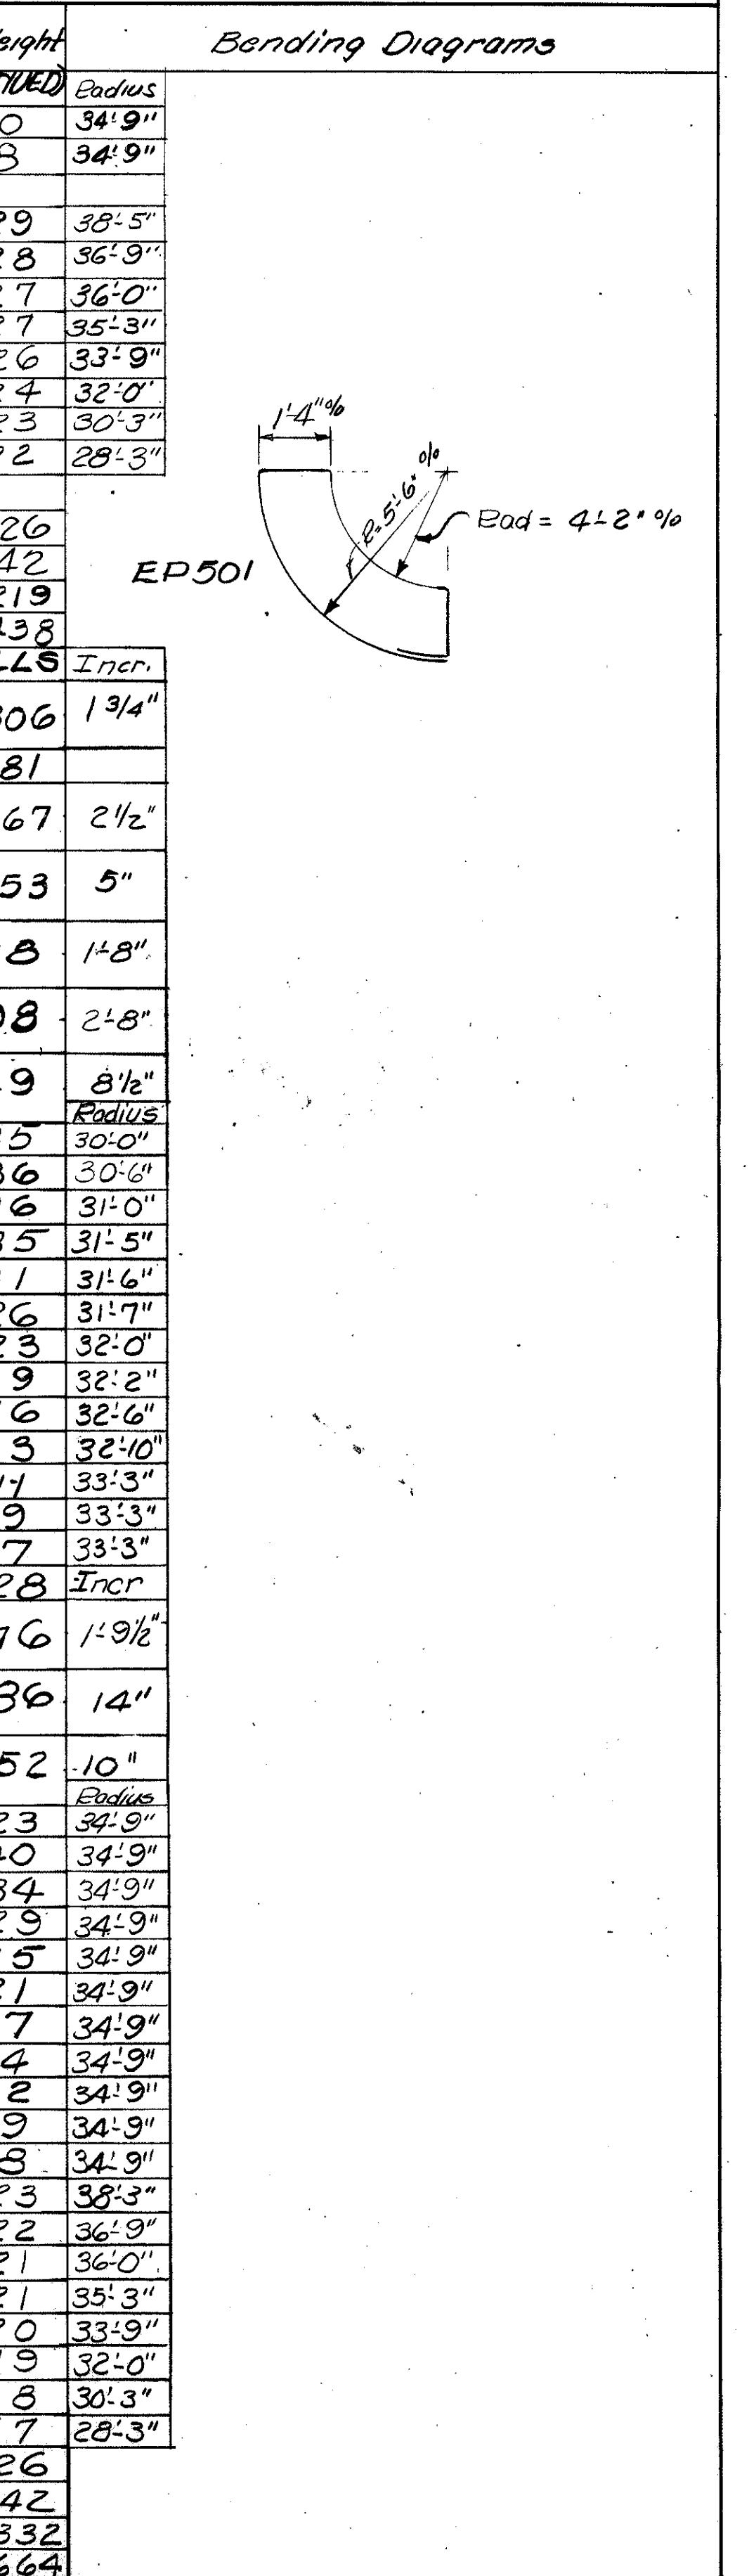 eight Bending Diagrams
NUED) Radius
0 34'-9"
8 34'-9"
29 38'-5"
28 36'-9"
27 36'-0"
27 35'-3"
26 33'-9"
24 32'-0"
23 30'-3"
22 28'-3"
1'-4" o/o
R=5'-6" o/o
Rad = 4'-2" o/o
EP501
26
42
219
438
LLS Incr.
306 1 3/4"
81
67 2 1/2"
53 5"
8 1'-8"
08 2'-8"
9 8 1/2"
Radius
5 30'-0"
36 30'-6"
6 31'-0"
35 31'-5"
1 31'-6"
26 31'-7"
23 32'-0"
9 32'-2"
6 32'-6"
3 32'-10"
11 33'-3"
9 33'-3"
7 33'-3"
28 Incr
76 1'-9 1/2"
36 14"
52 10"
Radius
23 34'-9"
40 34'-9"
34 34'-9"
29 34'-9"
5 34'-9"
21 34'-9"
7 34'-9"
4 34'-9"
2 34'-9"
9 34'-9"
8 34'-9"
23 38'-3"
22 36'-9"
21 36'-0"
21 35'-3"
20 33'-9"
9 32'-0"
8 30'-3"
7 28'-3"
26
42
332
664